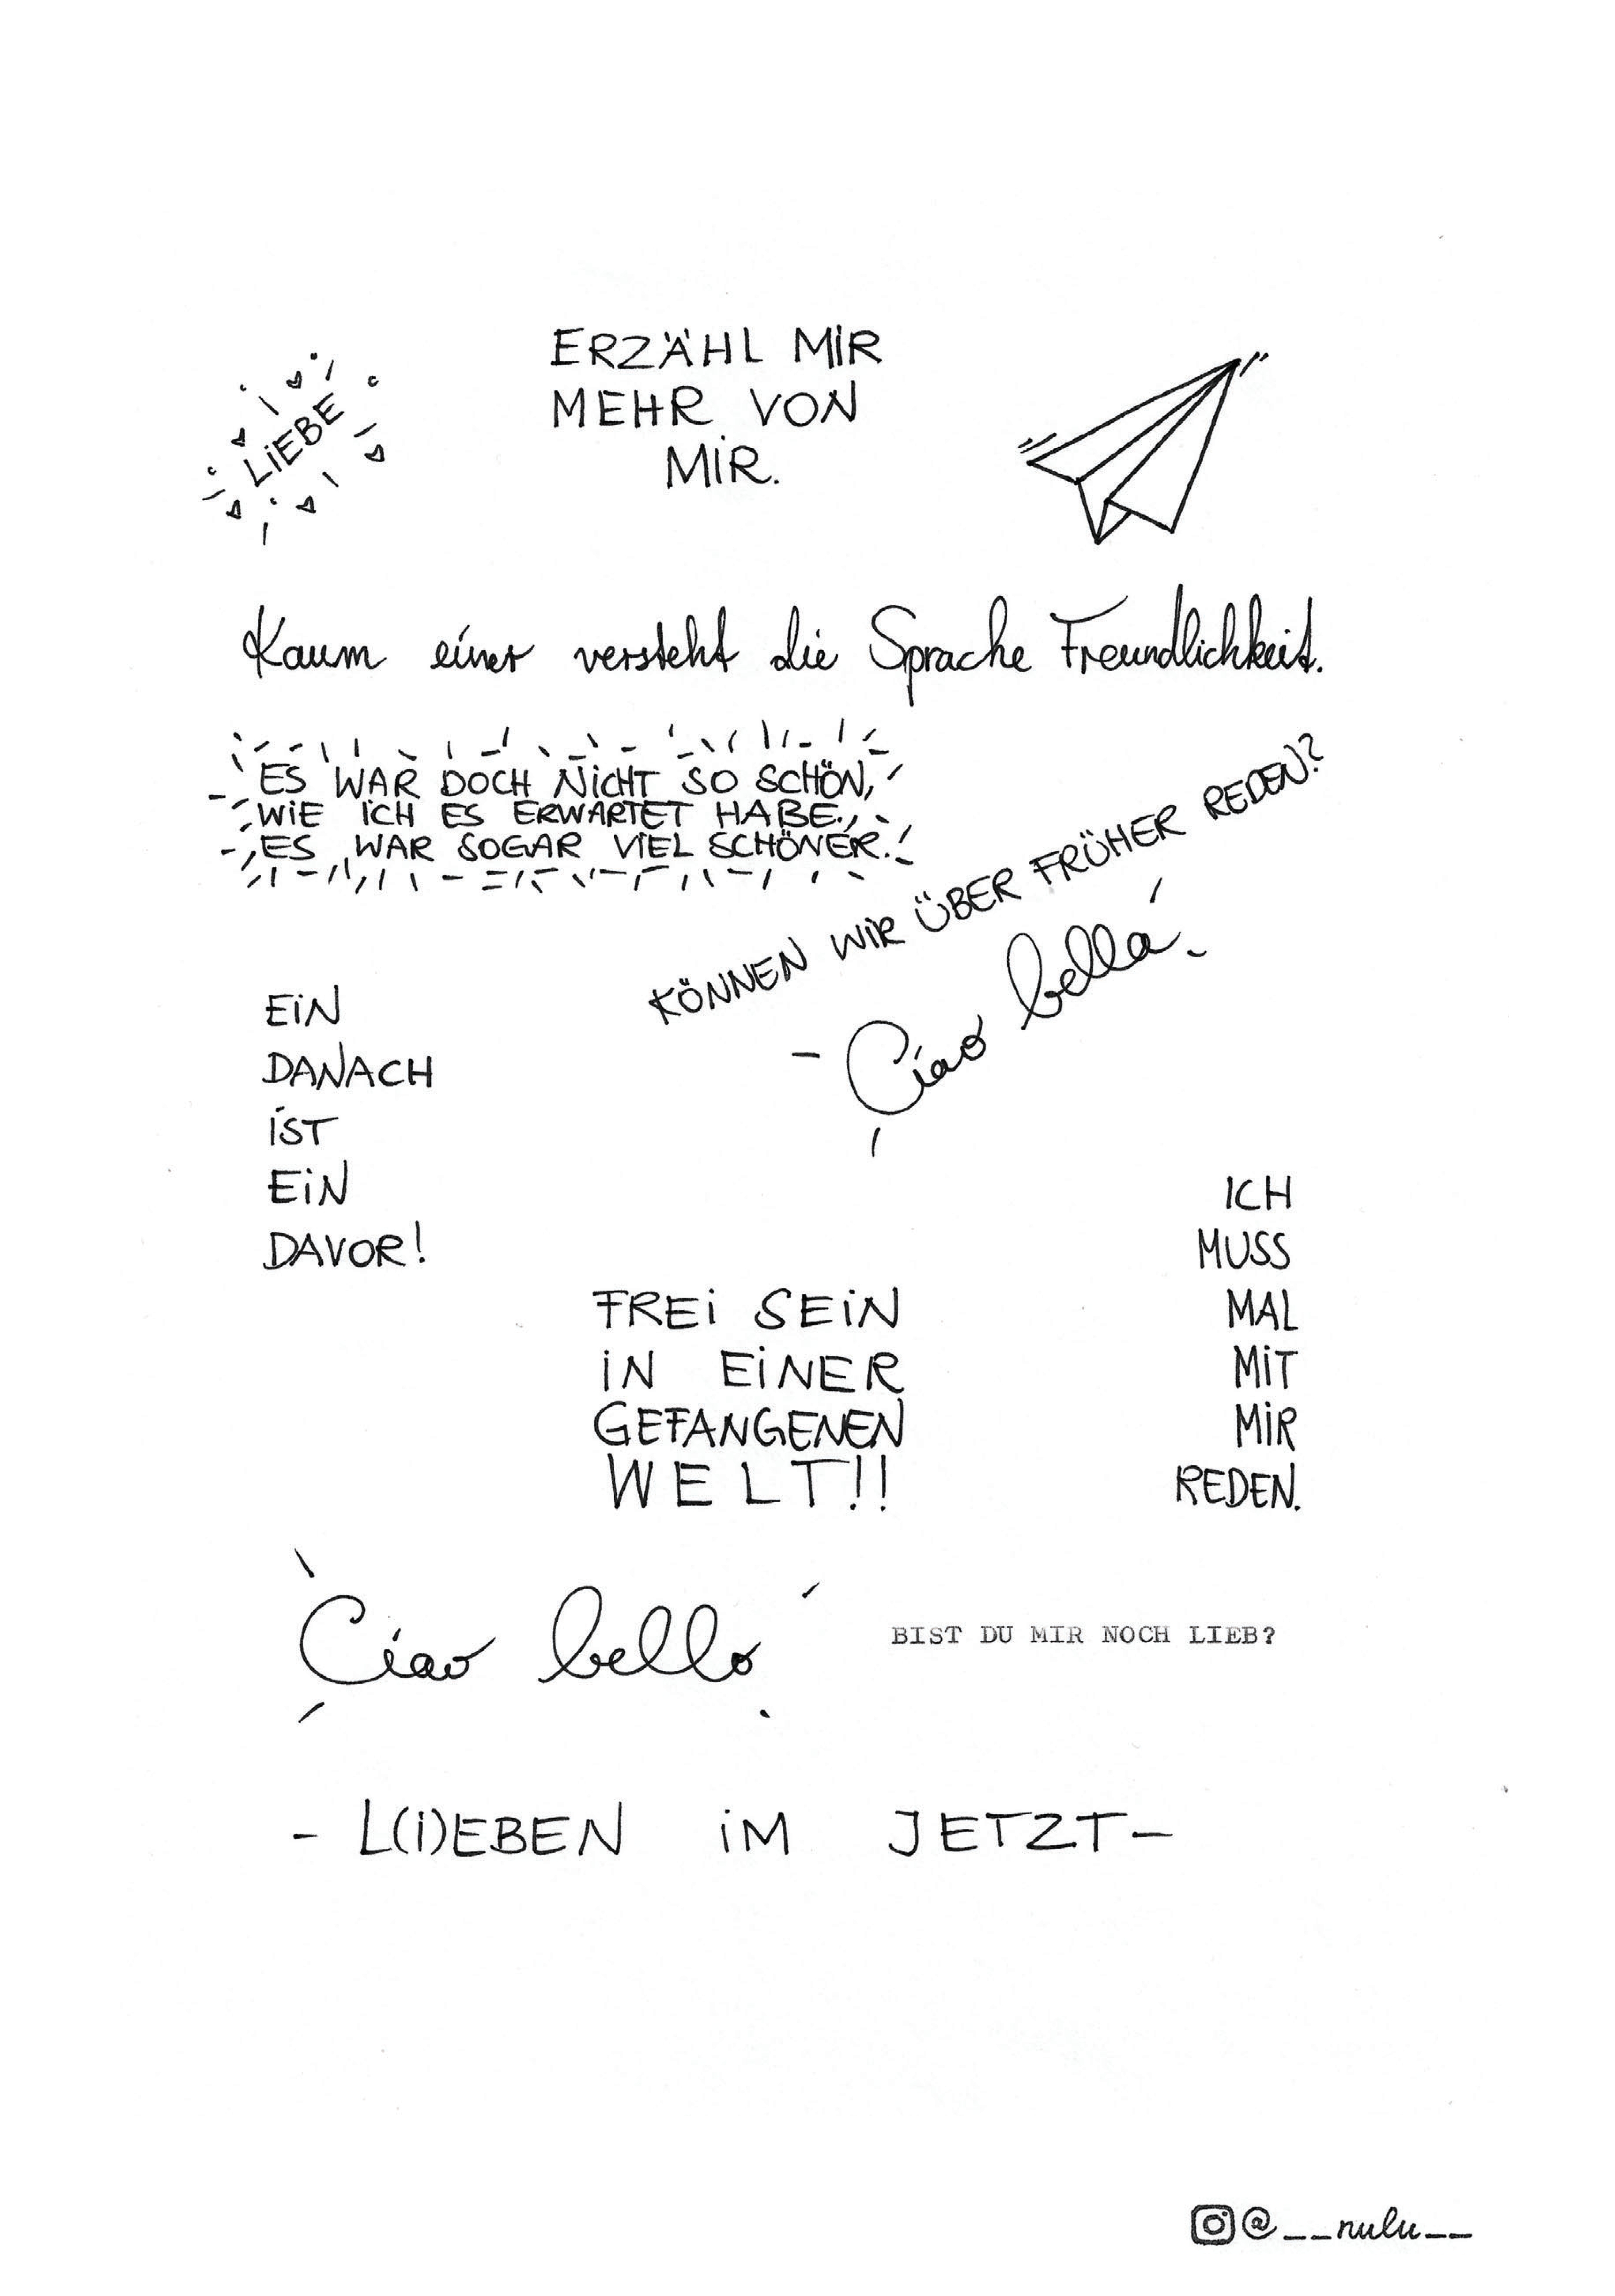 LiEBE
ERZÄHL MiR
MEHR VON
MiR.
Kaum einer versteht die Sprache Freundlichkeit.
ES WAR DOCH NiCHT SO SCHÖN,
WiE ICH ES ERWARTET HABE.
ES WAR SOGAR ViEL SCHÖNER.
KÖNNEN WiR ÜBER FRÜHER REDEN?
Ciao bella
EiN
DANACH
iST
EiN
DAVOR!
FREi SEiN
iN EiNER
GEFANGENEN
WELT!!
ICH
MUSS
MAL
MiT
MiR
REDEN.
Ciao bello
BIST DU MIR NOCH LIEB?
- L(i)EBEN iM JETZT -
@__nulu__